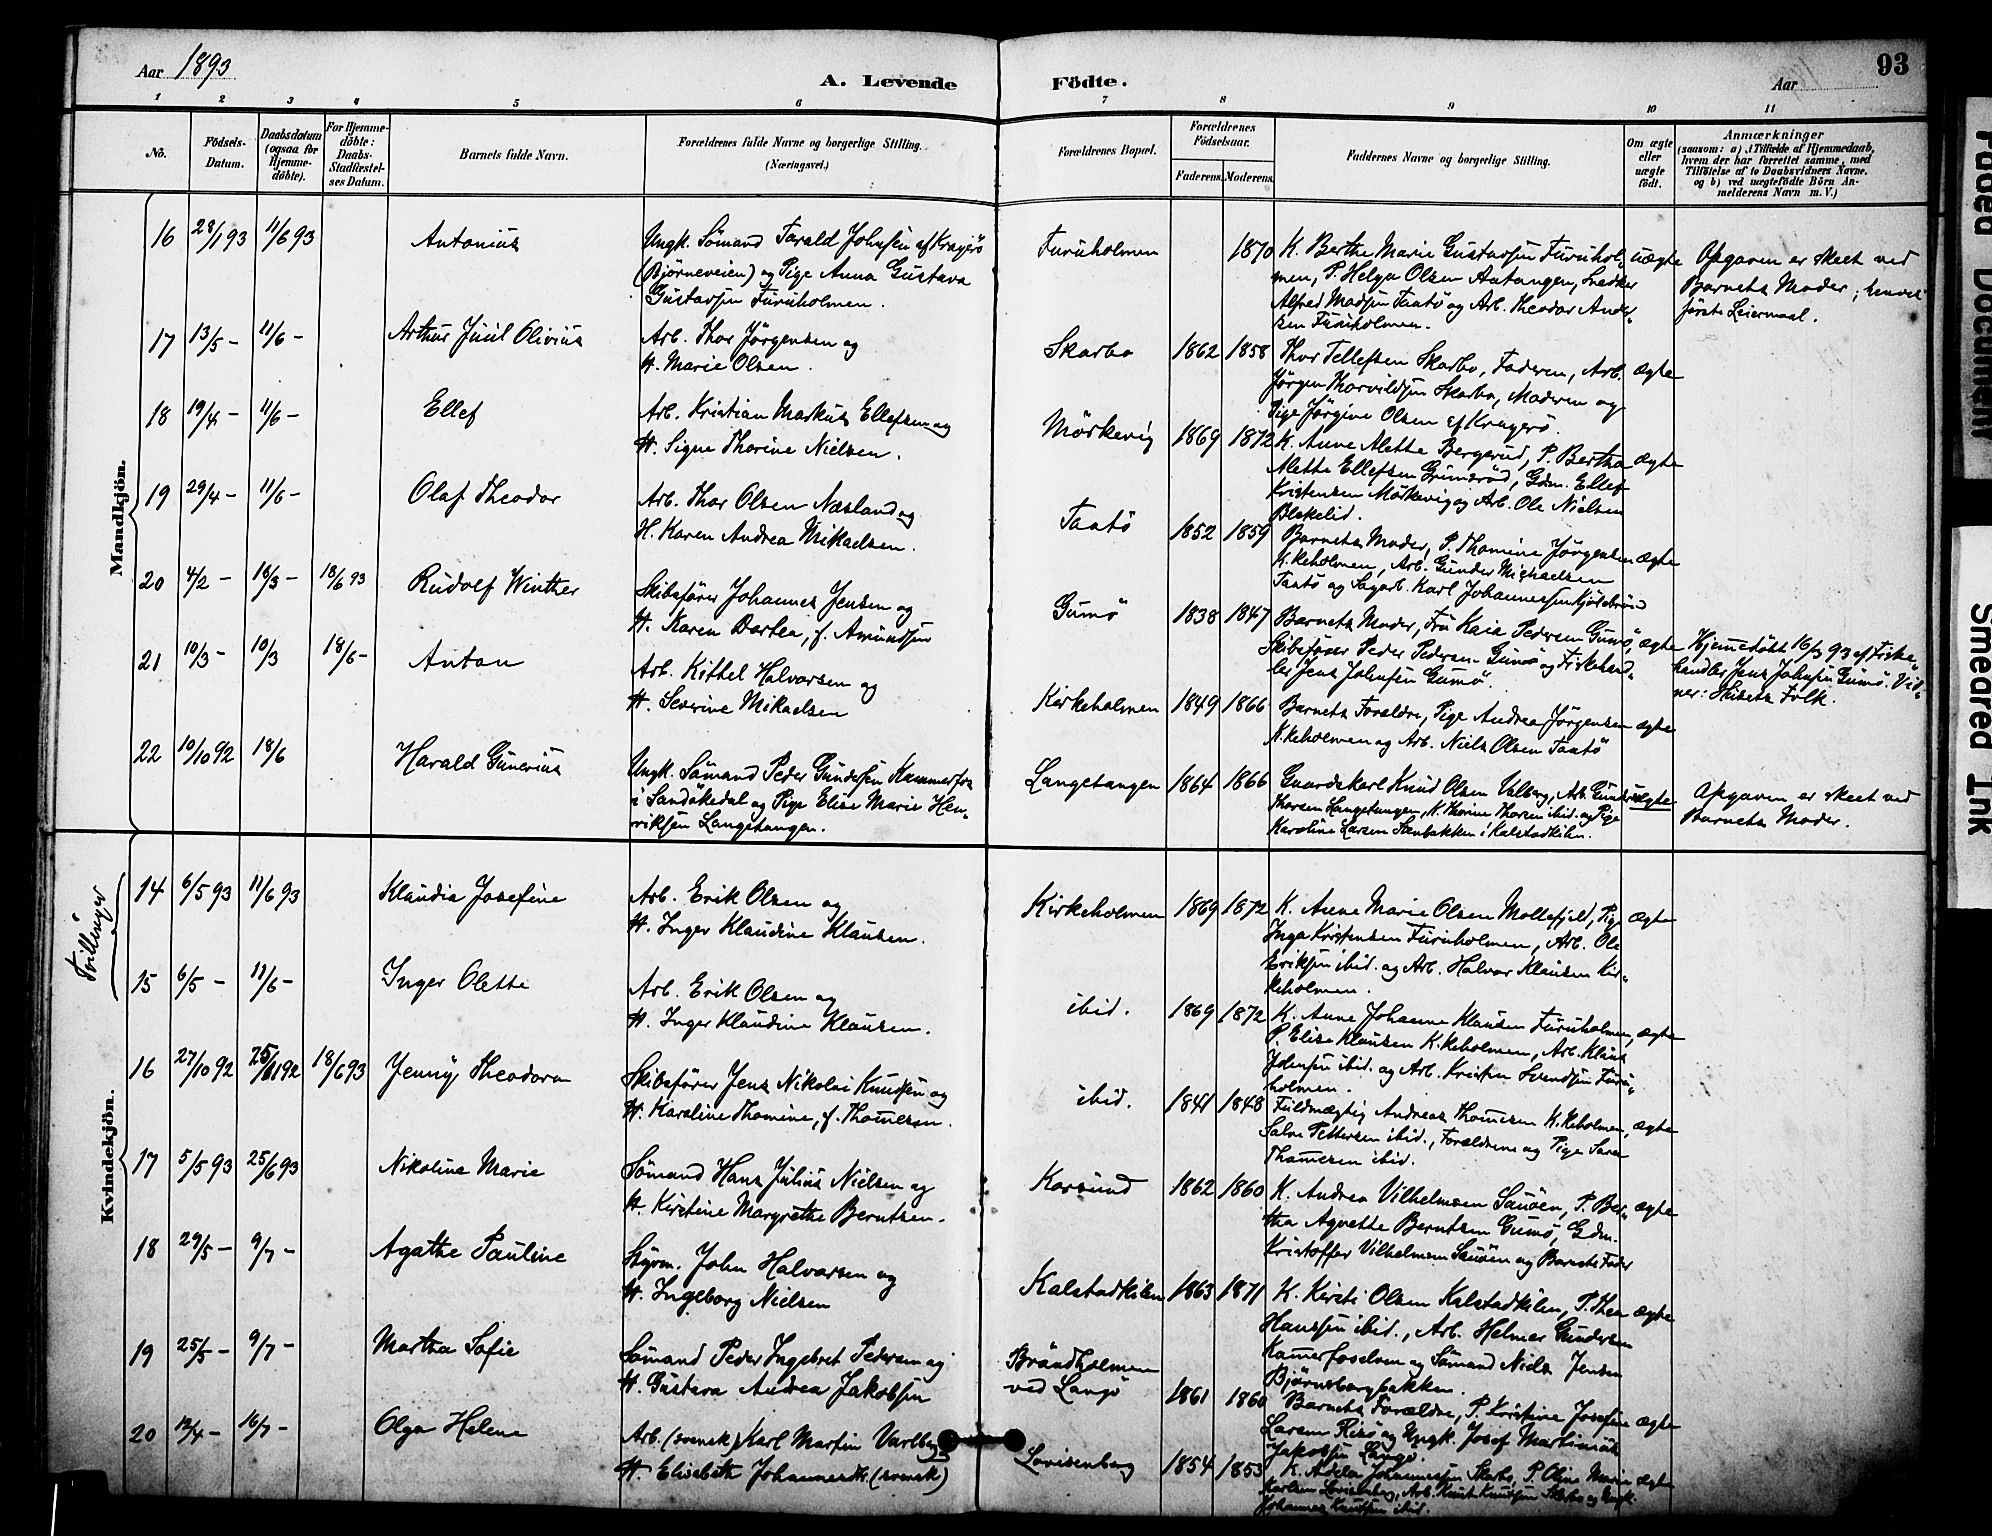 Aar 1893
A. Levende Födte.
Aar
93
1 2 3 4 5 6 7 8 9 10 11
No.
Födsels-Datum.
Daabsdatum (ogsaa for Hjemmedöbte).
For Hjemmedöbte: Daabs-Stadfæstelses Datum.
Barnets fulde Navn.
Forældrenes fulde Navne og borgerlige Stilling. (Næringsvei.)
Forældrenes Bopæl.
Forældrenes Födselsaar.
Faderens. Moderens.
Faddernes Navne og borgerlige Stilling.
Om ægte eller uægte födt.
Anmærkninger
(saasom: a) i Tilfælde af Hjemmedaab, hvem der har forrettet samme, med Tilföielse af to Daabsvidners Navne. og b) ved uægtefödte Börn Anmelderens Navn m.V.)
Mandkjön.
16 28/1 93 11/6 93 Antonius
Ungk. Sömand Tarald Johnsen af Kragerö
(Bjørneveien) og Pige Anna Gustava
Gustavsen Furuholmen.
Furuholmen 1870
K. Berthe Marie Gustavsen Furuhol-
men, P. Helga Olsen Aatangen, Snedker
Alfred Madsen Taatö og Arb. Theodor Ander-
sen Furuholmen.
uægte
Opgaven er skeet ved
Barnets Moder; hendes
første Leiermaal.
17 13/5 - 11/6 - Arthur Juul Olivius
Arb. Thor Jörgensen og
H. Marie Olsen.
Skarbo 1862 1858
Thor Tellefsen Skarbo, Faderen, Arb.
Jörgen Thorvildsen Skarbo, Moderen og
Pige Jörgine Olsen af Kragerö.
ægte
18 19/4 - 11/6 - Ellef
Arb. Kristian Markus Ellefsen og
H. Signe Thorine Nielsen.
Mörkevig 1869 1872
K. Anne Alette Bergerud, P. Bertha
Alette Ellefsen Grimsröd, Gdm. Ellef
Kristensen Mörkevig og Arb. Ole Nielsen
Blekelid.
ægte
19 29/4 - 11/6 - Olaf Theodor
Arb. Thor Olsen Næsland og
H. Karen Andrea Mikaelsen.
Taatö 1852 1859
Barnets Moder, P. Thomine Jörgensen
K.keholmen, Arb. Gunder Michaelsen
Taatö og Sagarb. Karl Johannessen
ægte
20 4/2 - 16/3 - 18/6 93 Rudolf Winther
Skibsförer Johannes Jensen og
H. Karen Dortea, f. Amundsen
Gumö 1838 1847
Barnets Moder, Fru Kaia Pedersen Gumö,
Skibsförer Peder Pedersen Gumö og Fiskehand-
ler Jens Johnsen Gumö.
ægte
Hjemmedöbt 16/3 93 af Fiske-
handler Jens Johnsen Gumö. Vid-
ner: Husets Folk.
21 10/3 - 10/3 18/6 - Anton
Arb. Kittel Halvorsen og
H. Severine Mikaelsen
Kirkeholmen 1849 1866
Barnets Forældre, Pige Andrea Jörgensen
K.keholmen og Arb. Niels Olsen Taatö
ægte
22 10/10 92 18/6 Harald Gunerius
Ungk. Sömand Peder Gundersen Kammerfos
i Sandökedal og Pige Elise Marie Hen-
riksen Langetangen.
Langetangen 1864 1866
Gaardskarl Knud Olsen Valberg, Arb. Gunder
Thorsen Langetangen, K. Thorine Thorsen ibid. og Pige
Karoline Larsen Stenbakken i Kalstadkilen.
uægte
Opgaven er skeet ved
Barnets Moder.
Kvindekjön.
Tvillinger
14 6/5 93 11/6 93 Klaudia Josefine
Arb. Erik Olsen og
H. Inger Klaudine Klausen.
Kirkeholmen 1869 1872
K. Anne Marie Olsen Mollefjeld, Pige
Inga Kristensen Furuholmen, Arb. Ole
Eriksen ibid. og Arb. Halvor Klausen Kir-
keholmen.
ægte
15 6/5 - 11/6 - Inger Olette
Arb. Erik Olsen og
H. Inger Klaudine Klausen.
ibid. 1869 1872
K. Anne Johanne Klausen Furuholmen,
P. Elise Klausen K.keholmen, Arb. Klaus
Johnsen ibid. og Arb. Kristen Svendsen Furu-
holmen.
ægte
16 27/10 92 25/11 92 18/6 93 Jenny Theodora
Skibsförer Jens Nikolai Knudsen og
H. Karoline Thomine, f. Thomesen.
ibid. 1841 1848
Fuldmægtig Andreas Thomesen K.keholmen,
Salve Pettersen ibid., Forældrene og Pige Sara
Thomesen ibid.
ægte
17 5/5 93 25/6 93 Nikoline Marie
Sömand Hans Julius Nielsen og
H. Kirstine Margrethe Berntsen.
Korsund 1862 1860
K. Andrea Vilhelmsen Sauöen, P. Ber-
tha Agnette Berntsen Gumö, Gdm.
Kristoffer Vilhelmsen Sauöen og Barnets Fader
ægte
18 29/5 - 9/7 - Agathe Pauline
Styrm. John Halvorsen og
H. Ingeborg Nielsen
Kalstadkilen 1863 1871
K. Kirsti Olsen Kalstadkilen, P. Thea
Hanssen ibid., Arb. Helmer Gundersen
Kamerfoselven og Sömand Niels Jensen
Björnsborgbakken.
ægte
19 25/5 - 9/7 - Martha Sofie
Sömand Peder Ingebret Pedersen og
H. Gustava Andrea Jakobsen
Brändholmen
ved Langö
1861 1860
Barnets Forældre, P. Kristine Josefine
Larsen Risö og Ungk. Josef Martinius
Jakobsen Langö.
ægte
20 12/4 - 16/7 - Olga Helene
Arb. (svensk) Karl Martin Varlberg
H. Elisabeth Johannesdt. (svensk)
Lovisenberg 1854 1853
K. Adela Johannessen Skarbo, P. Oline Marie
Karlsen Lovisenberg, Arb. Knut Knudsen Skarbo og Ungk.
Johannes Knudsen ibid.
ægte
Faded Document
Smeared Ink